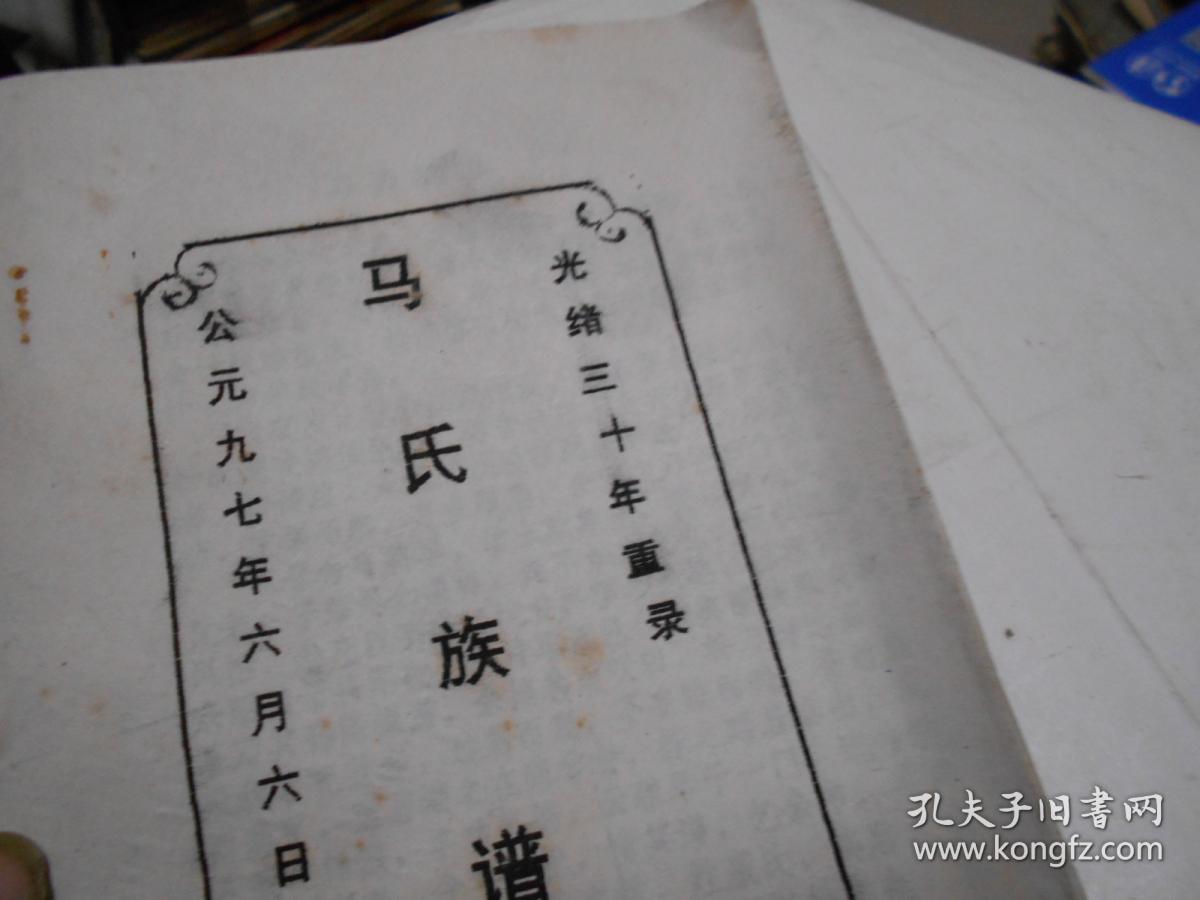 光绪三十年重录
马氏族谱
公元九七年六月六日
孔夫子旧书网
www.kongfz.com